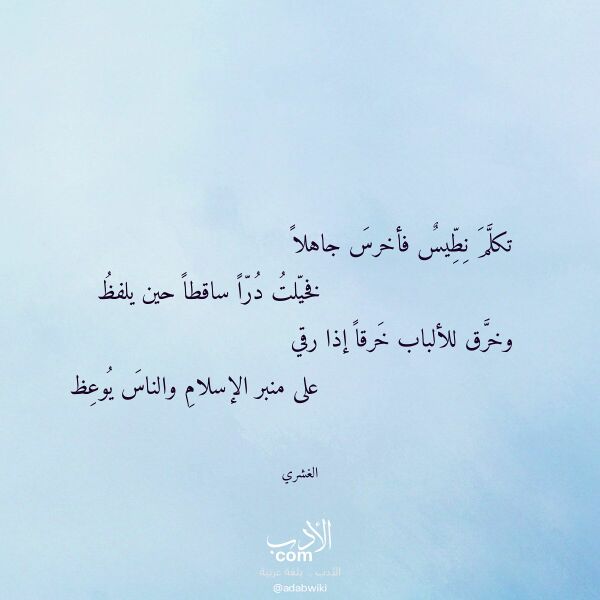 تكلَّمَ نِطِّيسٌ فأخرسَ جاهلاً
فخيّلتُ دُرّاً ساقطاً حين يلفظُ
وخرَّق للألباب خَرقاً إذا رقي
على منبر الإسلامِ والناسَ يُوعِظ
الغشري
الأدب
com
الأدب .. بلغة عربية
@adabwiki